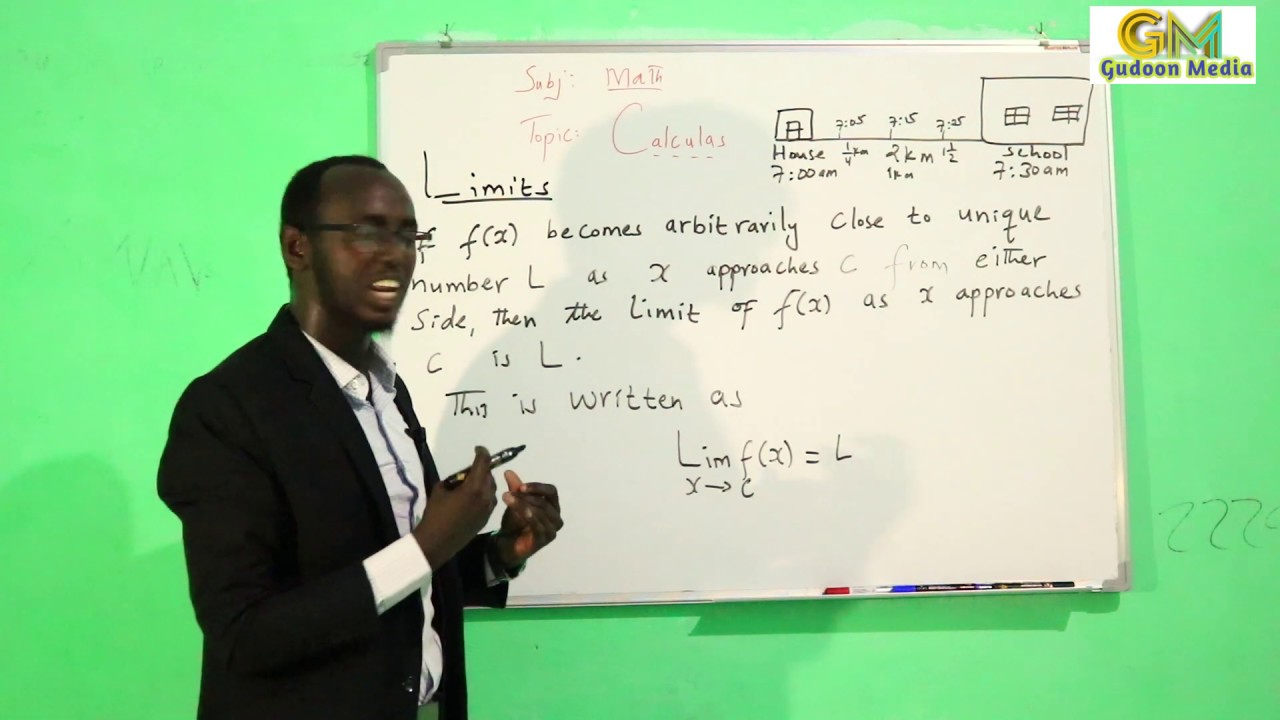 GM
Gudoon Media
Subj: Math
Topic: Calculas
7:05 7:15 7:25
House 1/4 km 2km 1 1/2 school
7:00am 1km 7:30am
Limits
If f(x) becomes arbitrarily close to unique
number L as x approaches C from either
side, then the limit of f(x) as x approaches
C is L.
This is written as
Lim f(x) = L
x→C